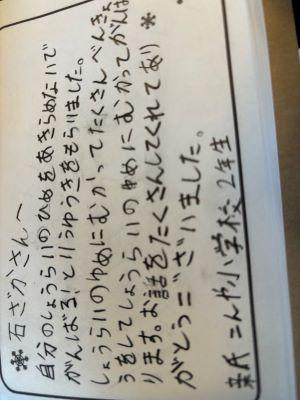 石ざかさんへ
自分のしょうらいのゆめをあきらめないで
がんばる!というゆうきをもらいました。
しょうらいのゆめにむかってたくさんべんきょ
うをしてしょうらいのゆめにむかってがんば
ります。お話をたくさんしてくれてあり
がとうございました。
こんや小学校2年生